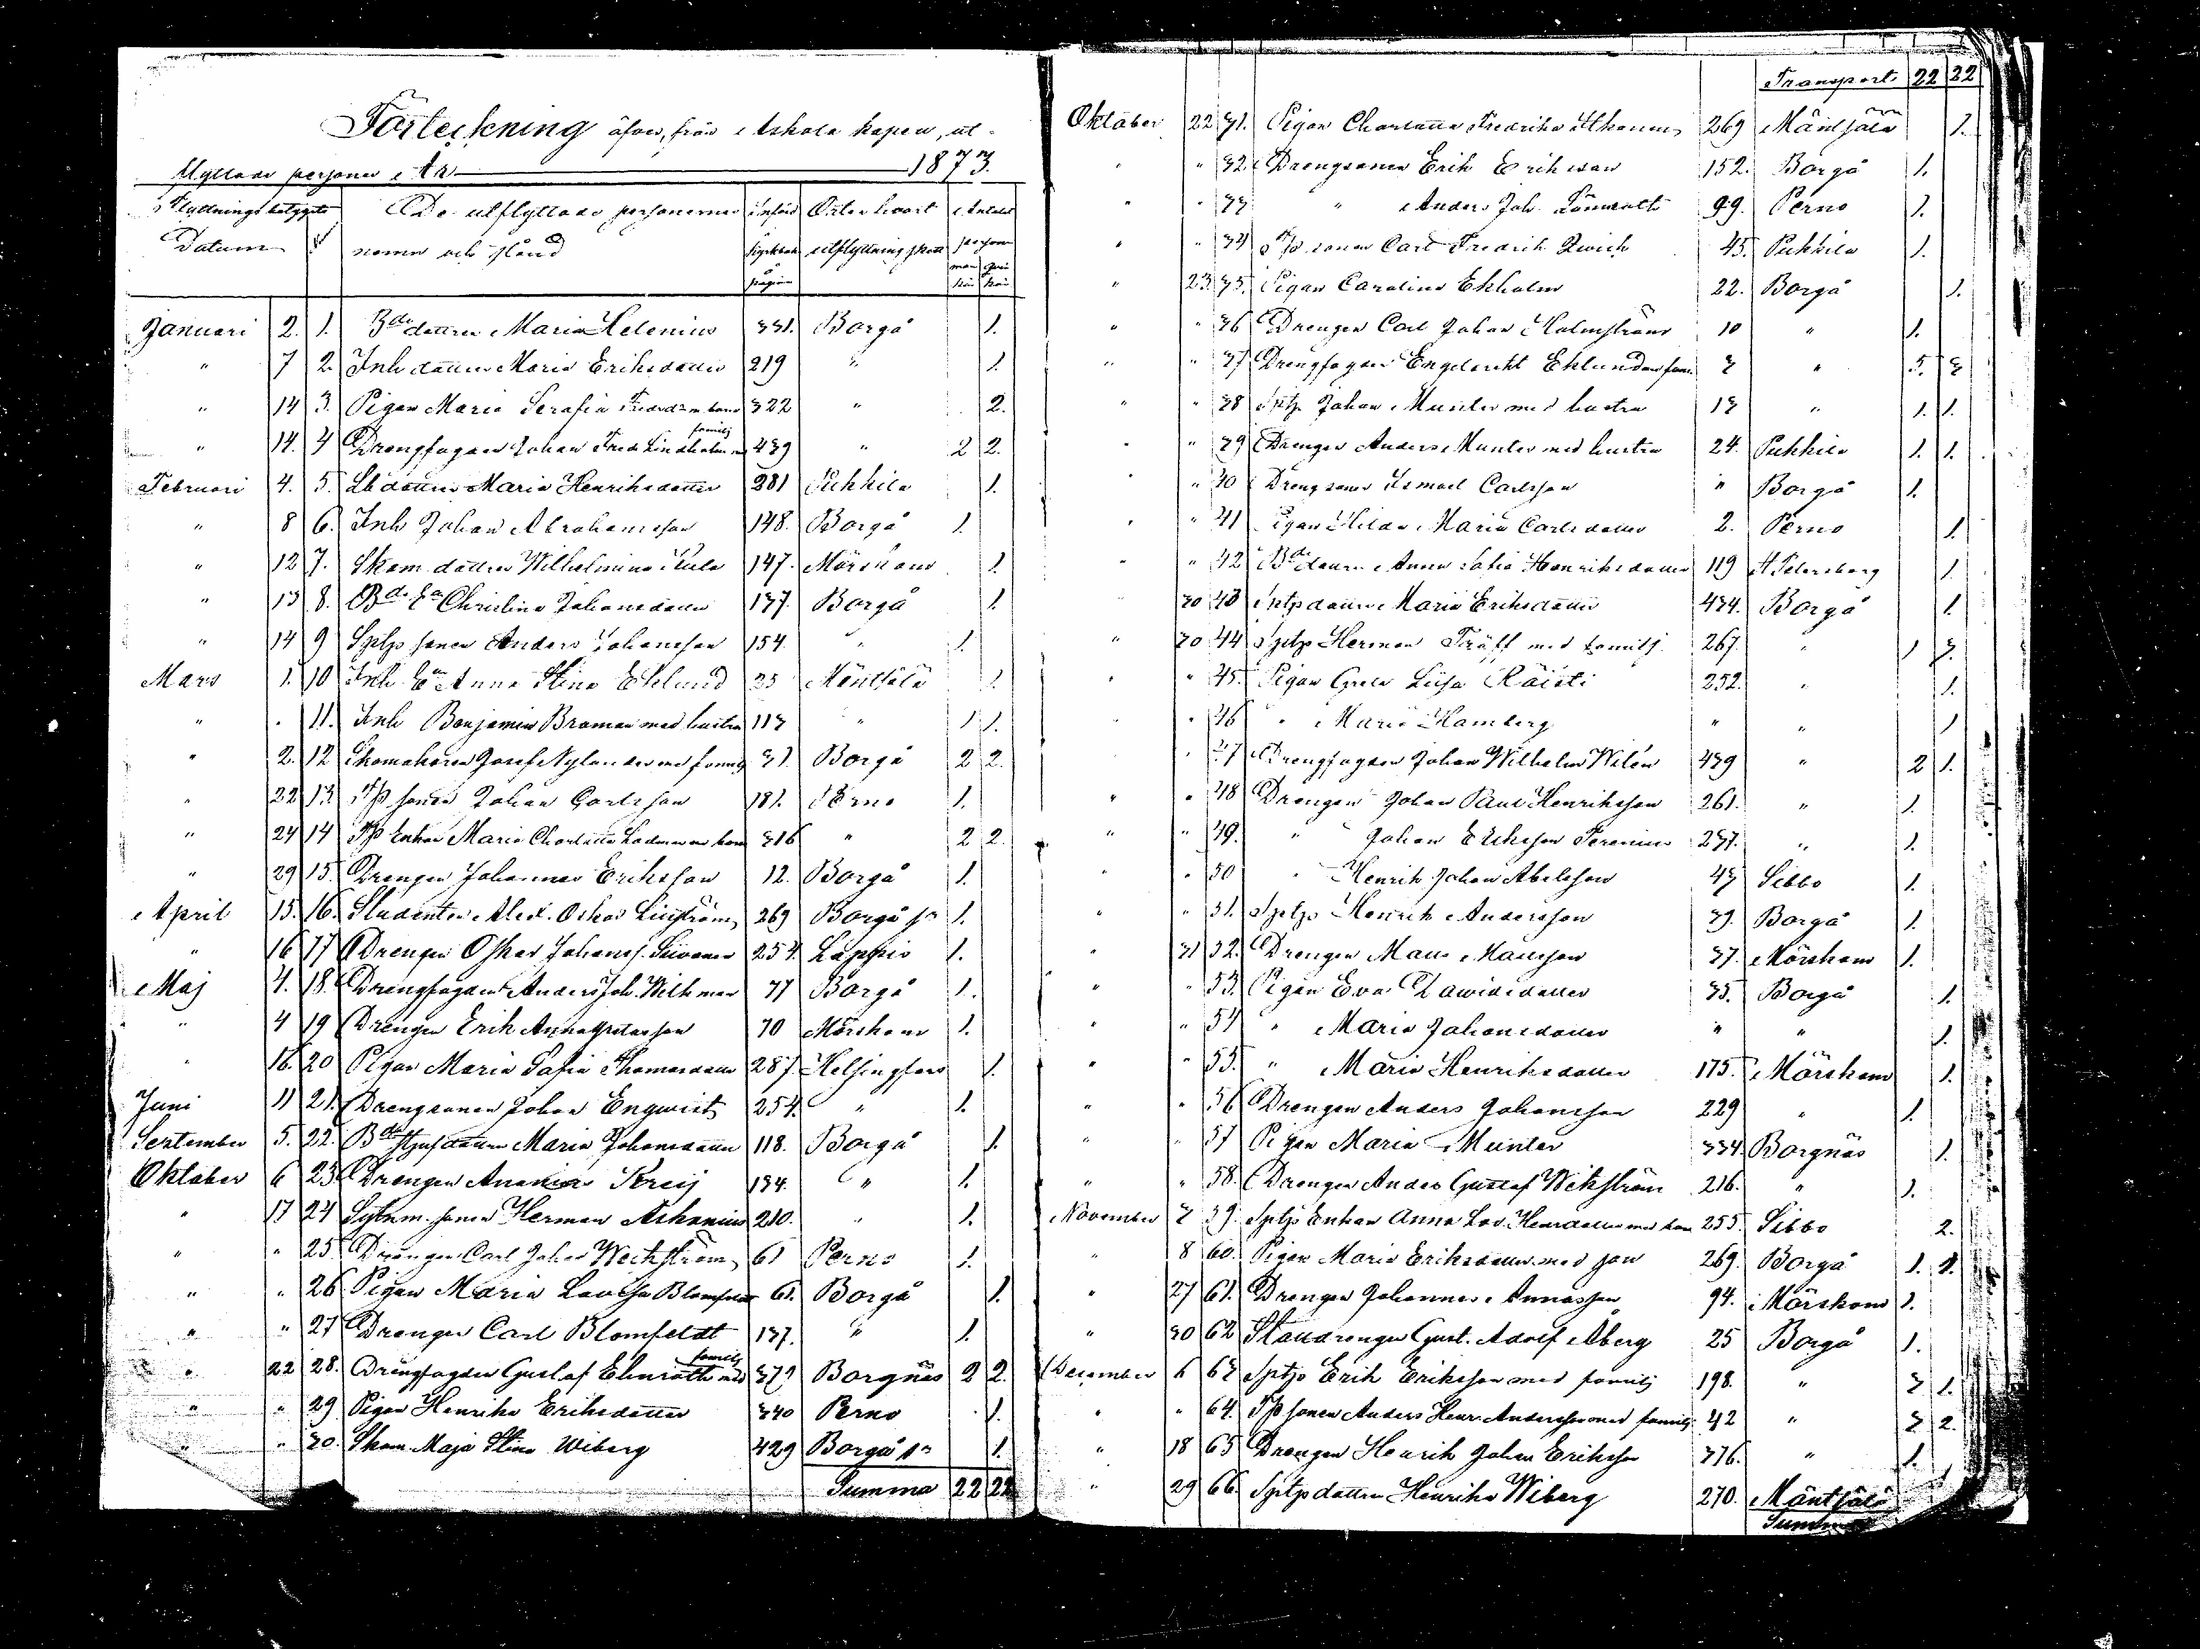 Förteckning öfver, från Askola kapell, ut-
flyttade personer År 1873.
Flyttnings betygets De utflyttade personernas införd Orten hvart Antalet
Datum № namn och stånd kyrkbok utflyttning skett person
pagina man kön qvin kön
Januari 2. 1. Bde dottren Maria Helenius 331. Borgå 1.
" 7 2. Inh dottren Maria Eriksdotter 219 " 1.
" 14 3. Pigan Maria Serafia Fredsd:r m. barn 322 " 2.
" 14. 4 Drengfogden Johan Fred. Lindholm m familj 439 " 2 2.
Februari 4. 5. Lb dottren Maria Henriksdotter 281 Pukkila 1.
" 8 6. Inh Johan Abrahamsson 148. Borgå 1.
" 12 7. Skom. dottren Wilhelmina 147. Mörskom 1.
" 13 8. Bde Ea Christina Johansdotter 137. Borgå 1.
" 14 9 Sptps sonen Anders Johansson 154. " 1.
Mars 1. 10 Inh. En Anna Stina Eklund 25 Mäntsälä 1.
" " 11. Inh Benjamin Broman med hustru 113 " 1 1.
" 2. 12 Skomakaren Josef Nylander med familj 31. Borgå 2 2.
" 22 13. Tp sonen Johan Carlsson 181. Perno 1.
" 24 14 Tp Enkan Maria Charlotta med barn 316 " 2 2.
" 29 15. Drengen Johannes Eriksson 12. Borgå 1.
April 15. 16. Studenten Alex. Oskar Liljström 269 Borgå sn 1.
" 16 17 Drengen Oskar Johanss. 254. Lappis 1.
Maj 4. 18. Drengfogden Anders Joh. Wikman 71 Borgå 1.
" 4 19 Drengen Erik Annagretasson 70 Mörskom 1.
" 16. 20 Pigan Maria Sofia Thomasdotter 287. Helsingfors 1.
Juni 11 21. Drengsonen Johan Engwist 254. " 1.
September 5. 22. Bde Styfdottren Maria Johansdotter 118. Borgå 1.
Oktober 6 23. Drengen Ananias Kreij 134. " 1.
" 17 24 Sytnm. sonen Herman Askanius 210. " 1.
" " 25. Drengen Carl Johan Weckström 61 Perno 1.
" " 26 Pigan Maria Lovisa Blomfeldt 61. Borgå 1.
" " 27 Drengen Carl Blomfeldt 137. " 1.
" 22 28. Drengfogden Gustaf Ehnroth med familj 372 Borgnäs 2 2.
" " 29 Pigan Henrika Eriksdotter 340 Perno 1.
" " 30. Skom. Maja Stina Wiberg 429 Borgå sn 1.
Summa 22 22
Transport 22 22
Oktober 22 31. Pigan Charlotta Fredrika 269 Mäntsälä 1.
" " 32. Drengsonen Erik Eriksson 152. Borgå 1.
" " 33 " Anders Joh. Lönnroth 99. Perno 1.
" " 34 Tp sonen Carl Fredrik Qwick 45. Pukkila 1.
" 23 35. Pigan Carolina Ekholm 22. Borgå 1.
" " 36 Drengen Carl Johan Holmström 10 " 1.
" " 37 Drengfogden Engelbrekt Eklund med fam. 3 " 5. 3
" " 38 Sptp Johan Munter med hustru 13 " 1. 1.
" " 39 Drengen Anders Munter med hustru 24. Pukkila 1. 1.
" " 40 Drengsonen Ismael Carlsson " Borgå 1.
" " 41 Pigan Hilda Maria Carlsdotter 2. Perno 1.
" " 42 Bde dottren Anna Sofia Henriksdotter 119 St Petersburg 1.
30 43 Sptps dottren Maria Eriksdotter 434. Borgå 1.
" 30 44 Sptp Herman Träff med familj. 267. " 1 3.
" " 45. Pigan Greta Lisa Räisti 252. " 1.
" " 46 " Maria Hamberg " " 1
" 47 Drengfogden Johan Wilhelm Wilén 439 " 2 1.
" " 48 Drengen Johan Paul Henriksson 261. " 1.
" " 49. " Johan Eriksson Serenius 237. " 1.
" " 50 " Henrik Johan Abelsson 43 Sibbo 1.
" " 51. Sptps Henrik Andersson 39. Borgå 1.
" 31 52. Drengen Maus Mausson 37. Mörskom 1.
" " 53. Pigan Eva Davidsdotter 35. Borgå 1.
" " 54 " Maria Johansdotter " " 1.
" " 55. " Maria Henriksdotter 175. Mörskom 1.
" " 56 Drengen Anders Johansson 229 " 1.
" " 57 Pigan Maria Munter 334. Borgnäs 1.
" " 58. Drengen Anders Gustaf Wikström 216. " 1.
November 7 59. Sptps Enkan Anna Lov. Henrsdotter med barn 255. Sibbo 2.
" 8 60. Pigan Maria Eriksdotter med son 269. Borgå 1. 1.
" 27 61. Drengen Johannes Annasson 94. Mörskom 1.
" 30 62 Stalldrengen Gust. Adolf Åberg 25 Borgå 1.
December 6 63 Sptps Erik Eriksson med familj 198. " 3 1.
" " 64. Tp sonen Anders Henr. Andersson med familj 42 " 3 2.
" 18 65 Drengen Henrik Johan Eriksson 376. " 1.
" 29 66. Sptps dottren Henrika Wiberg 270. Mäntsälä
Summa